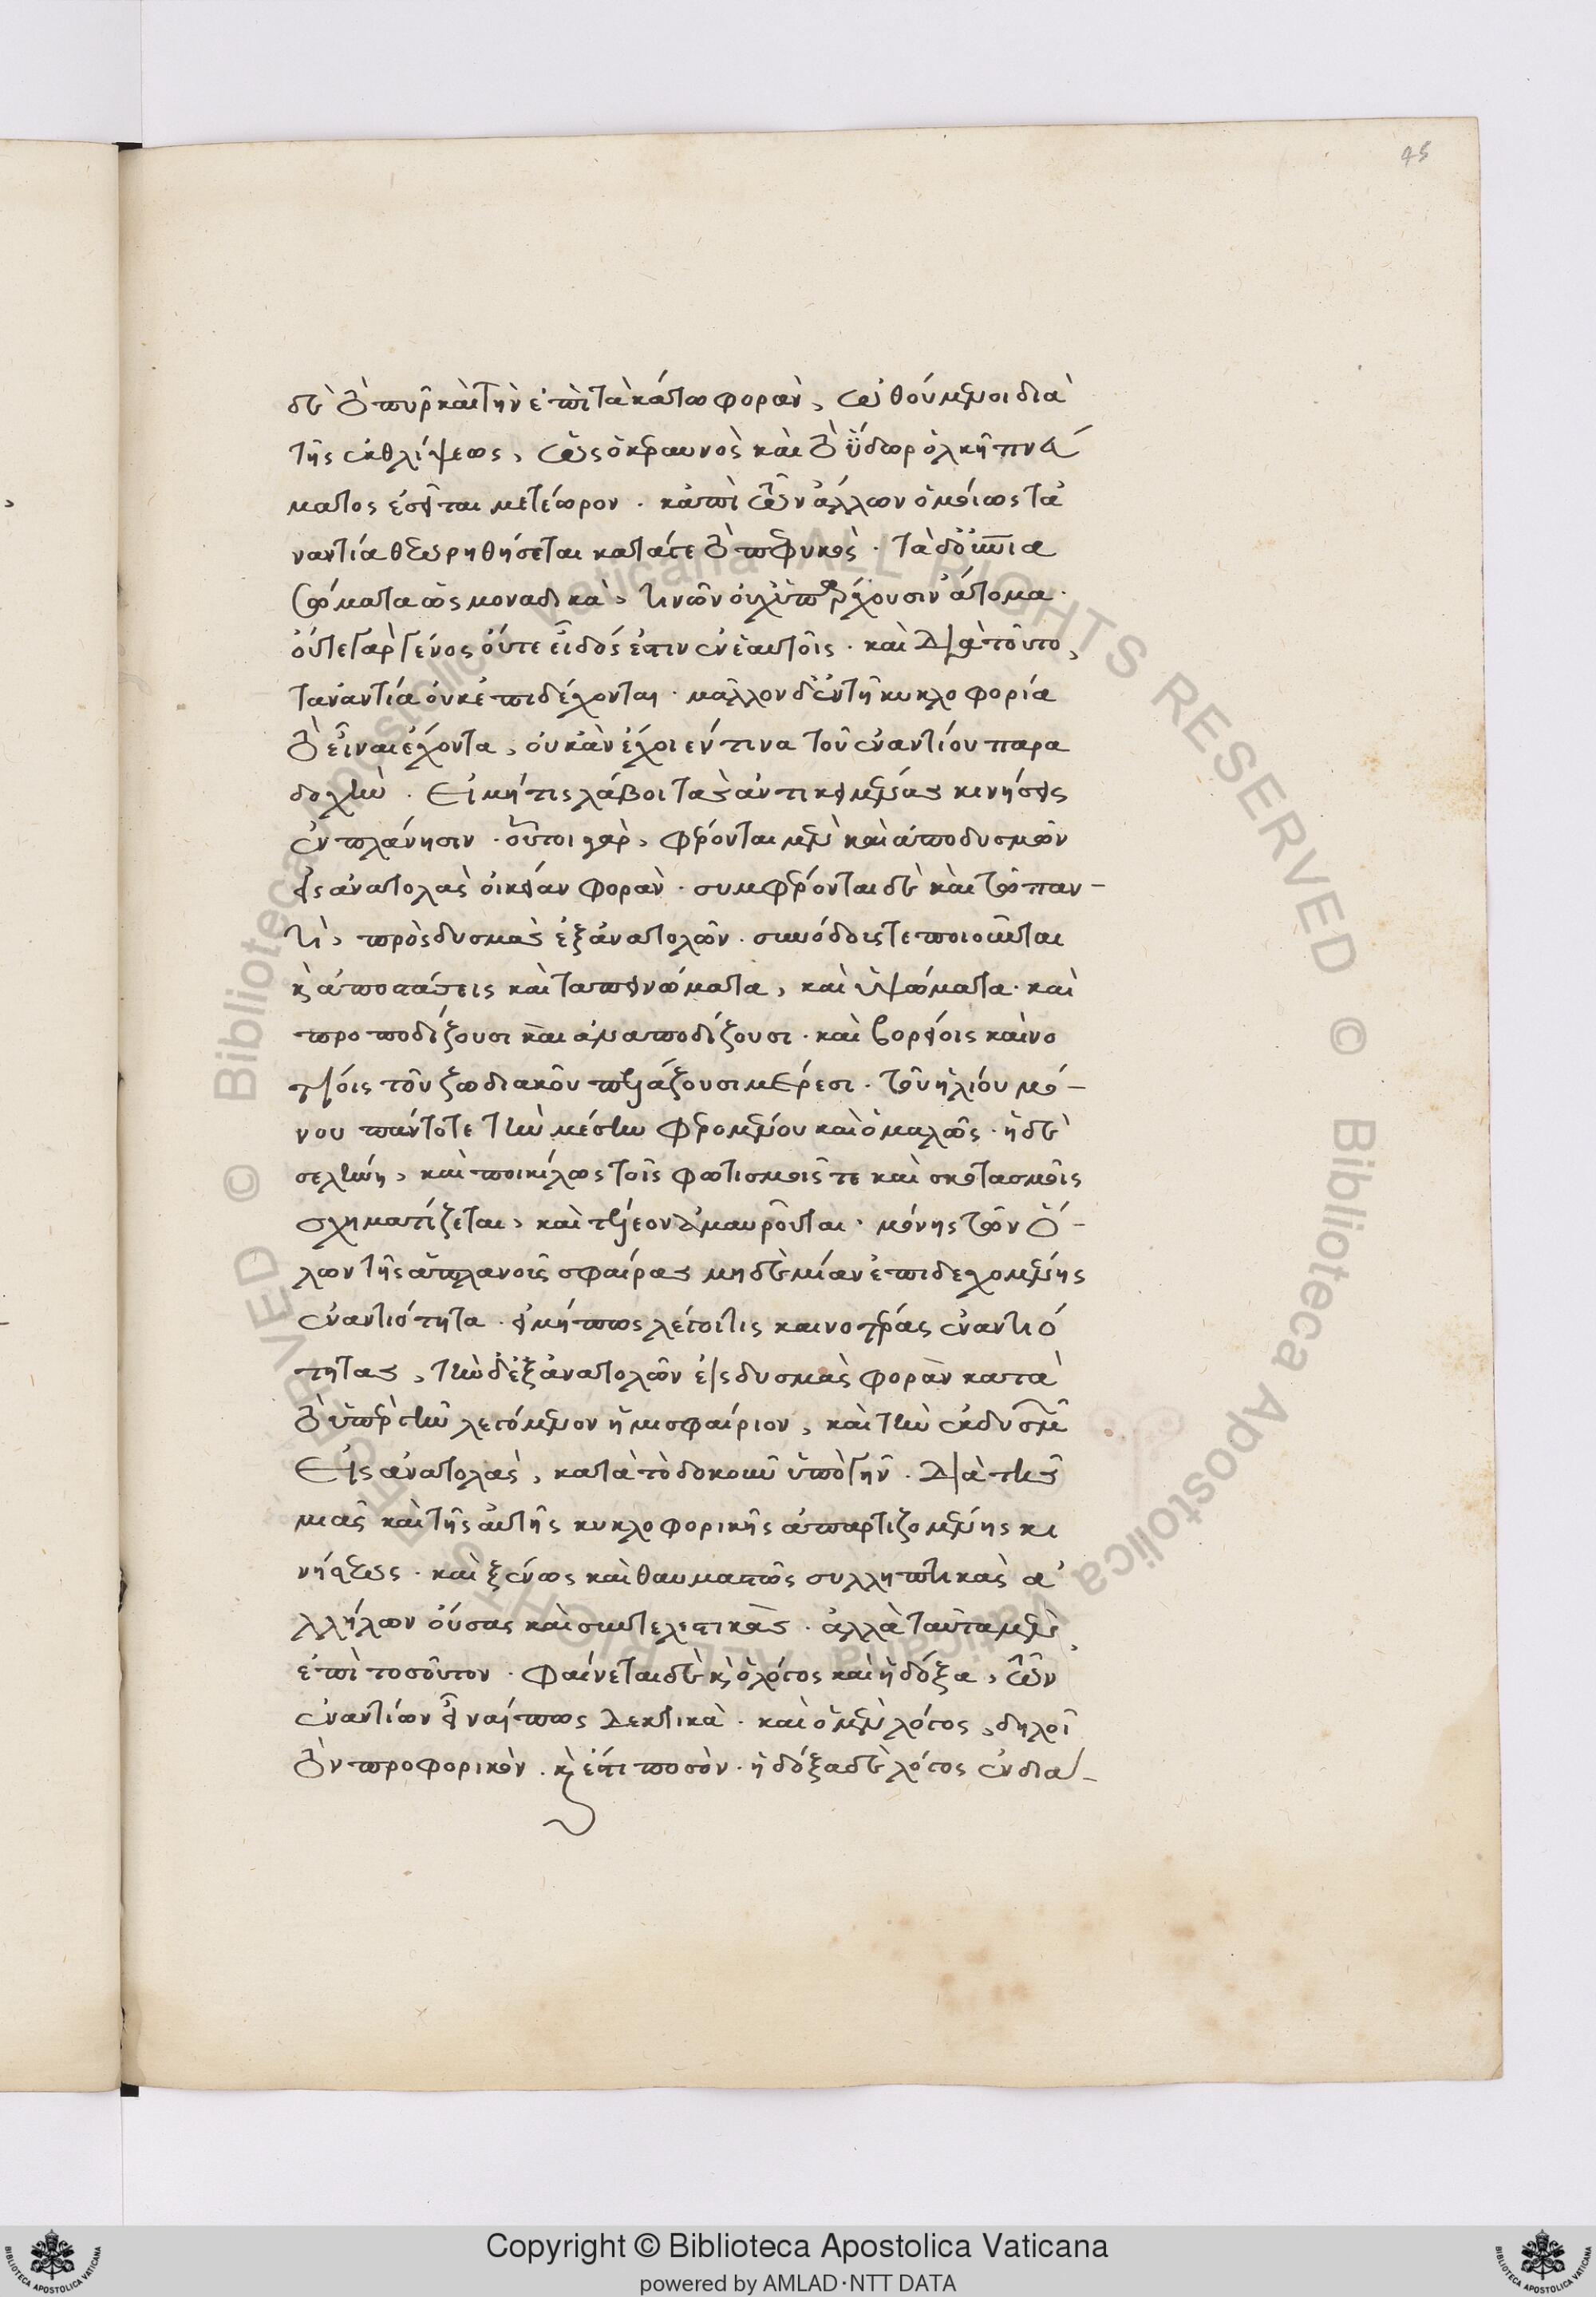 45
δὲ τὸ πῦρ καὶ τὴν ἐπὶ τὰ κάτω φορὰν, ὠθούμενοι διὰ
τῆς ἐκθλίψεως, ὡς ὁ κεραυνὸς καὶ τὸ ὕδωρ ὁλκῆ πνεύ
ματος ἔσται μετέωρον . κἀπὶ τῶν ἄλλων ὁμοίως τἀ
ναντία θεωρηθήσεται κατά γε τὸ πεφυκὸς . τὰ δ' οὐράνια
σώματα ὡς μοναδικὰ, τινῶν οὐχ ὑπάρχουσιν ἄτομα .
οὔτε γὰρ γένος οὔτε εἶδός ἐστιν ἐν ἑαυτοῖς . καὶ διὰ τοῦτο,
τἀναντία οὐκ ἐπιδέχονται . μᾶλλον δ' ἐν τῆ κυκλοφορία
τὸ εἶναι ἔχοντα, οὐκ ἂν ἔχοιεν τινα τοῦ ἐναντίου παρα
δοχὴν . Εἰ μή τις λάβοι τὰς ἀντικειμένας κινήσεις
ἐν πλάνησιν . οὗτοι γὰρ, φέρονται μὲν καὶ ἀπὸ δυσμῶν
εἰς ἀνατολὰς οἰκείαν φορὰν . συμφέρονται δὲ καὶ τῶ παν-
τὶ, πρὸς δυσμὰς ἐξ ἀνατολῶν . συνόδοις τε ποιοῦνται
καὶ ἀποστάσεις καὶ ταπεινώματα, καὶ ὑψώματα . καὶ
προποδίζουσι καὶ ἀναποδίζουσι . καὶ βορείοις καὶ νο
τείοις τοῦ ζωδιακοῦ πλησιάζουσι μέρεσι . τοῦ ἡλίου μό-
νου πάντοτε τὴν μέσην φερομένου καὶ ὁμαλῶς . ἡ δὲ
σελήνη, καὶ ποικίλως τοῖς φωτισμοῖς τε καὶ σκοτασμοῖς
σχηματίζεται, καὶ πλέον ἀμαυροῦται . μόνης τῶν ὅ-
λων τῆς ἀπλανοῦς σφαίρας μηδὲ μίαν ἐπιδεχομένης
ἐναντιότητα . εἰ μήπως λέγοι τις καινοτέρας ἐναντιό
τητας, τὴν δ' ἐξ ἀνατολῶν εἰς δυσμὰς φορὰν κατὰ
τὸ ὑπὲρ γῆν λεγόμενον ἡμισφαίριον, καὶ τὴν ἐκ δυσμῶν
Εἰς ἀνατολὰς, κατὰ τὸ δοκοῦν ὑπὸ γῆν . διὰ τῆς
μιᾶς καὶ τῆς αὐτῆς κυκλοφορικῆς ἀπαρτιζομένης κι
νήσεως . καὶ ξένως καὶ θαυμαστῶς συλληπτικὰς ἀ
λλήλων οὔσας καὶ συντελεστικὰς . ἀλλὰ ταῦτα μὲν,
ἐπὶ τοσοῦτον . φαίνεται δὲ καὶ ὁ λόγος καὶ ἡ δόξα, τῶν
ἐναντίων εἶναί πως δεκτικὰ . καὶ ὁ μὲν λόγος, δηλοῖ
τὸν προφορικὸν . καὶ ἔστι ποσὸν . ἡ δόξα δὲ λόγος ἐνδιά-
Copyright © Biblioteca Apostolica Vaticana
powered by AMLAD·NTT DATA